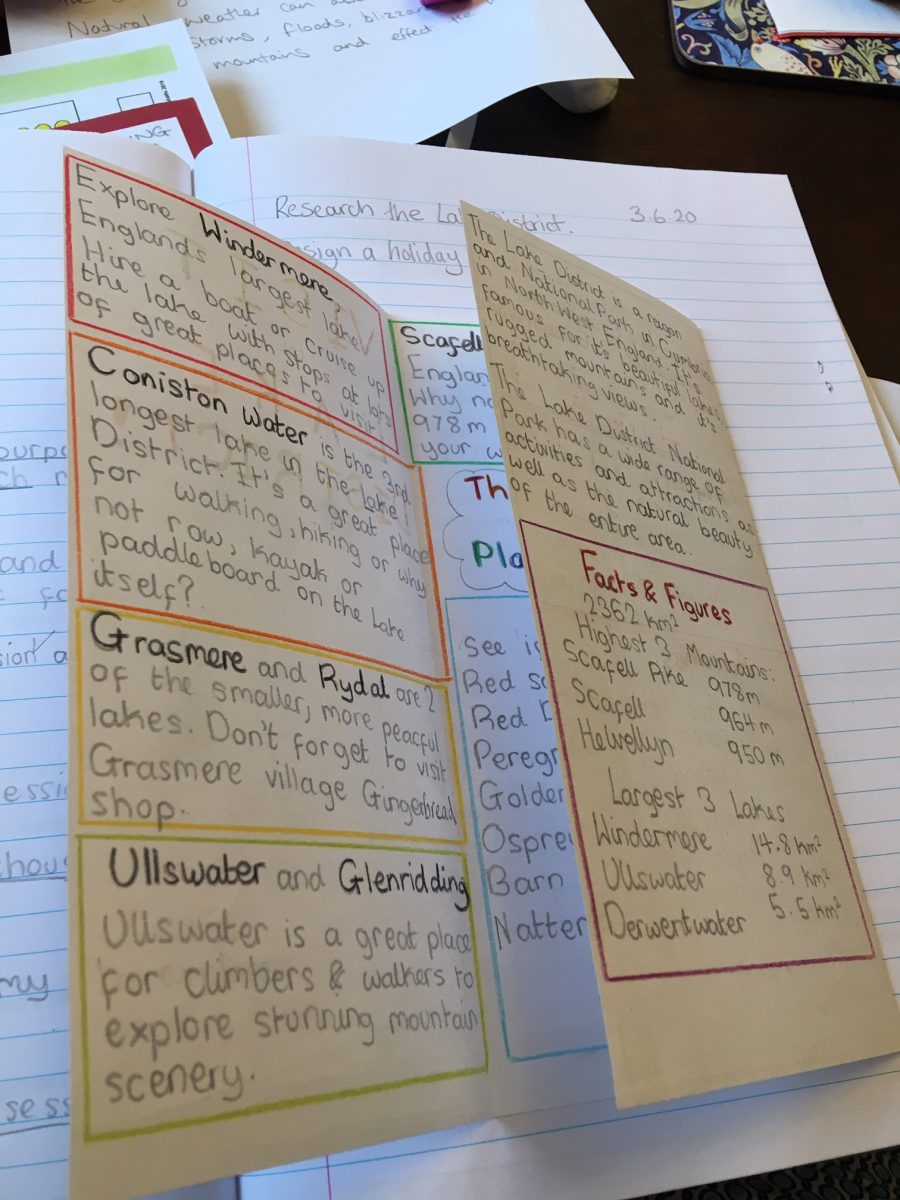 Natural weather can
storms, floods, blizzar
mountains and effect the
Research the La District. 3.6.20
sign a holiday
Explore Windermere,
Englands largest lake
Hire a boat or cruise up
the lake with stops at lots
of great places to visit!
Coniston Water is the 3rd
longest lake in the Lake
District. It's a great place
for walking, hiking or why
not row, kayak or
paddleboard on the lake
itself?
Grasmere and Rydal are 2
of the smaller, more peacful
lakes. Don't forget to visit
Grasmere village Gingerbread
shop.
Ullswater and Glenridding
Ullswater is a great place
for climbers & walkers to
explore stunning mountain
scenery.
Scafell
Englan
Why no
978m
your w
Th
Pla
See is
Red s
Red
Peregr
Golden
Ospre
Barn
Natter
The Lake District is a region
and National Park in Cumbria
in North West England. It's
famous for its beautiful lakes,
rugged mountains and it's
breathtaking views.
The Lake District National
Park has a wide range of
activities and attractions as
well as the natural beauty
of the entire area.
Facts & Figures
2362 km²
Highest 3 Mountains:
Scafell Pike 978m
Scafell 964m
Helvellyn 950m
Largest 3 Lakes
Windermere 14.8 km²
Ullswater 8.9 km²
Derwentwater 5.5 km²